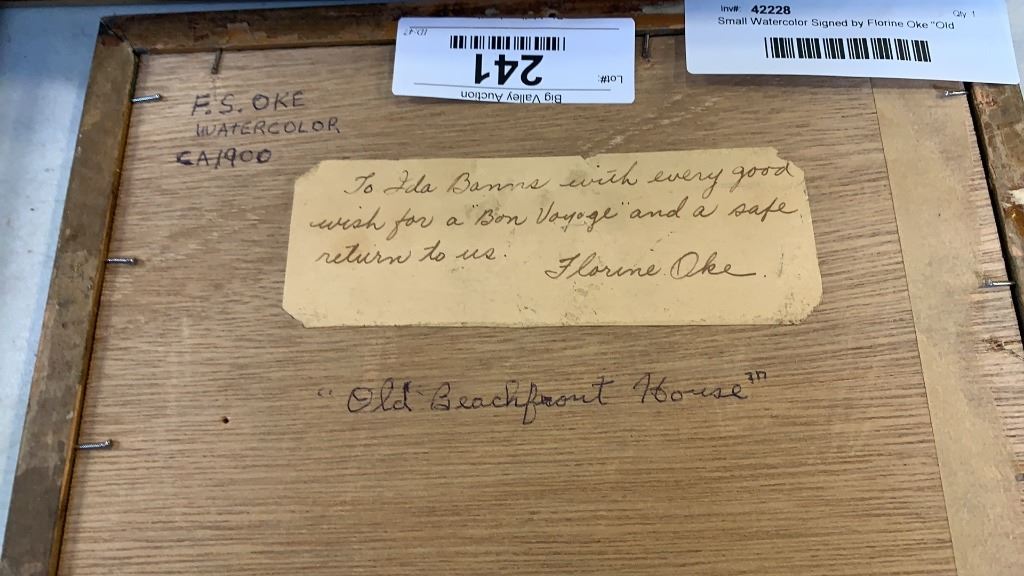 Inv#: 42228 Qty 1
Small Watercolor Signed by Florine Oke "Old
Big Valley Auction
Lot#: 241
F.S. OKE
WATERCOLOR
CA1900
To Ida Banns with every good
wish for a "Bon Voyage" and a safe
return to us. Florine Oke.
"Old Beachfront House"